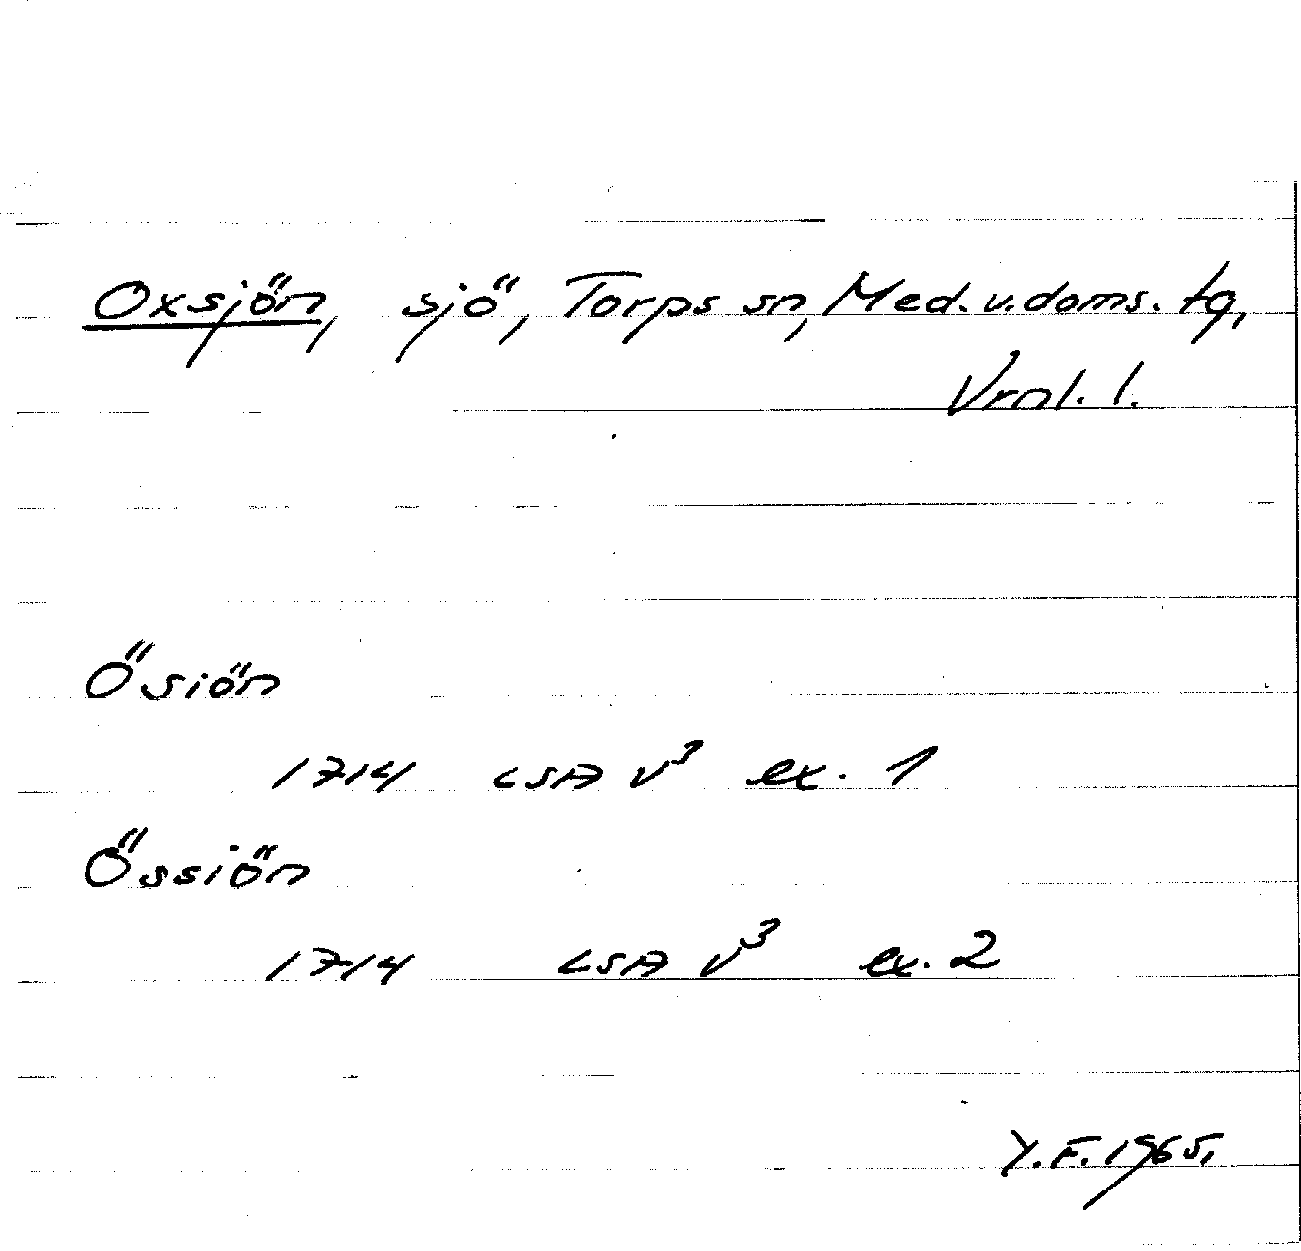 Oxsjön, sjö, Torps sn, Med. v. doms. tg,
Vrnl. l.
Ösiön
1714 LSA V³ ex. 1
Össiön
1714 LSA V³ ex. 2
Y.F. 1965.